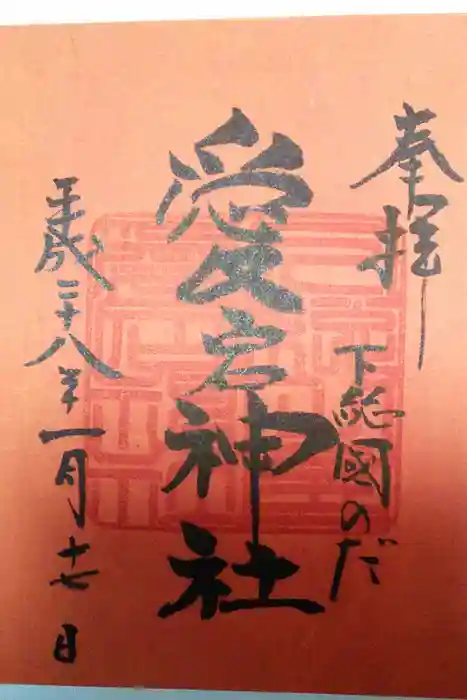 奉拝
下総國のだ
愛宕神社
平成二十八年一月十七日